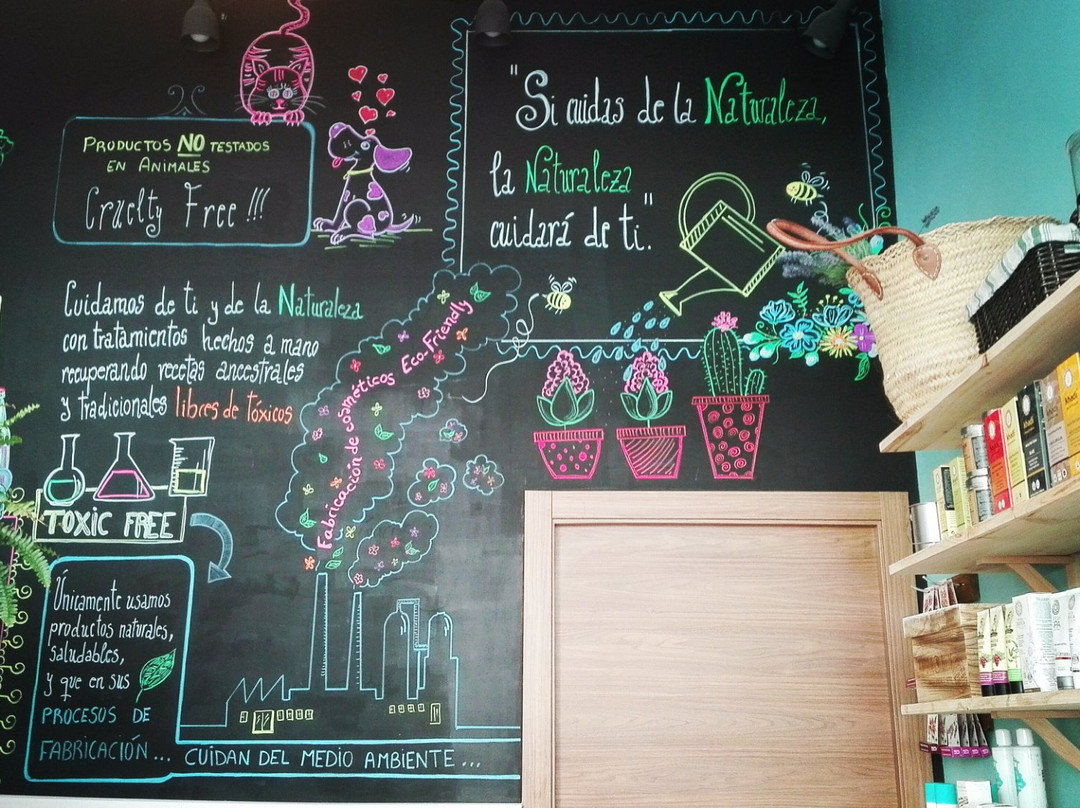 PRODUCTOS NO TESTADOS
EN ANIMALES
Cruelty Free !!!
"Si cuidas de la Naturaleza,
la Naturaleza
cuidará de ti."
Cuidamos de ti y de la Naturaleza
con tratamientos hechos a mano
recuperando recetas ancestrales
y tradicionales libres de tóxicos
Fabricación de cosméticos Eco-Friendly
TOXIC FREE
Únicamente usamos
productos naturales,
saludables,
y que en sus
PROCESOS DE
FABRICACIÓN...
CUIDAN DEL MEDIO AMBIENTE...
khadi
khadi
khadi